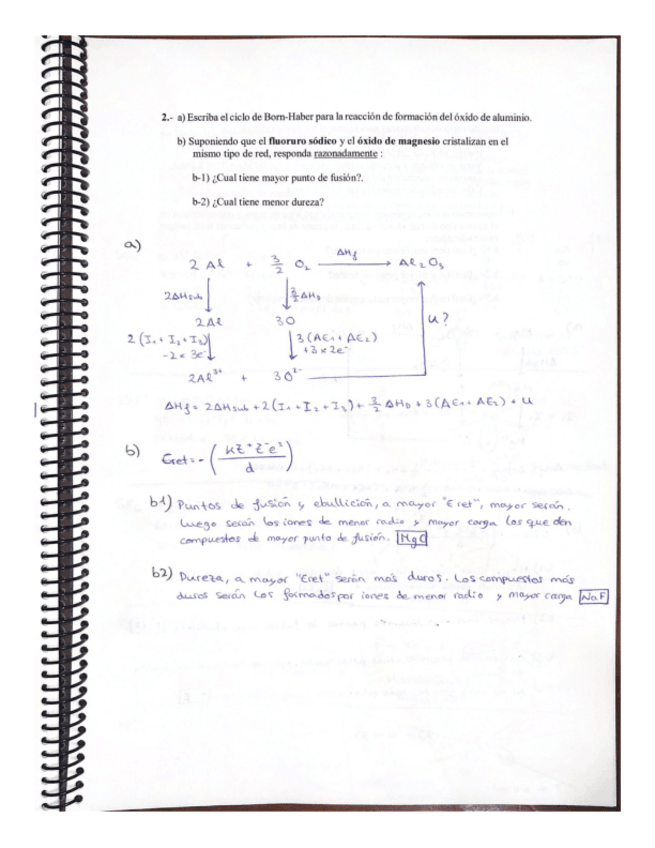 2.- a) Escriba el ciclo de Born-Haber para la reacción de formación del óxido de aluminio.
b) Suponiendo que el fluoruro sódico y el óxido de magnesio cristalizan en el
mismo tipo de red, responda razonadamente :
b-1) ¿Cual tiene mayor punto de fusión?.
b-2) ¿Cual tiene menor dureza?
a)
2 Al + 3/2 O₂ ΔHf → Al₂O₃
2ΔHsub 3/2 ΔHD
2Al 3O U?
2 (I₁ + I₂ + I₃) 3 (AE₁ + AE₂)
-2 × 3e⁻ +3 × 2e⁻
2Al³⁺ + 3O²⁻
ΔHf = 2ΔHsub + 2 (I₁ + I₂ + I₃) + 3/2 ΔHD + 3 (AE₁ + AE₂) + U
b) Eret = - (KZ⁺Z⁻e² / d)
b1) Puntos de fusión y ebullición, a mayor "Eret", mayor serán.
Luego serán los iones de menor radio y mayor carga los que den
compuestos de mayor punto de fusión. MgO
b2) Dureza, a mayor "Eret" serán más duros. Los compuestos más
duros serán los formados por iones de menor radio y mayor carga NaF